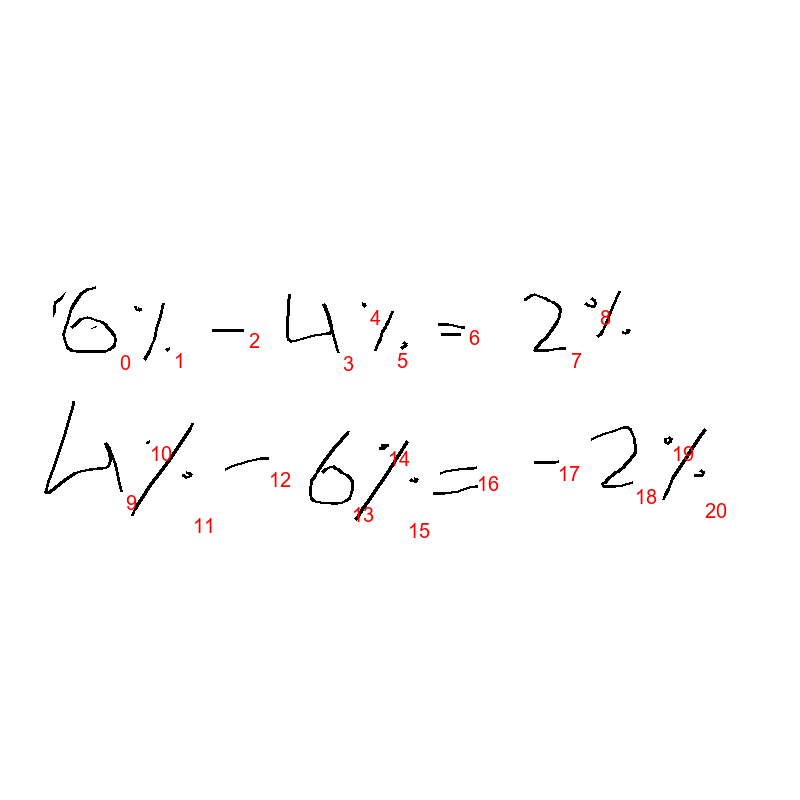 6% - 4% = 2%
4% - 6% = -2%
0 1 2 3 4 5 6 7 8
9 10 11 12 13 14 15 16 17 18 19 20